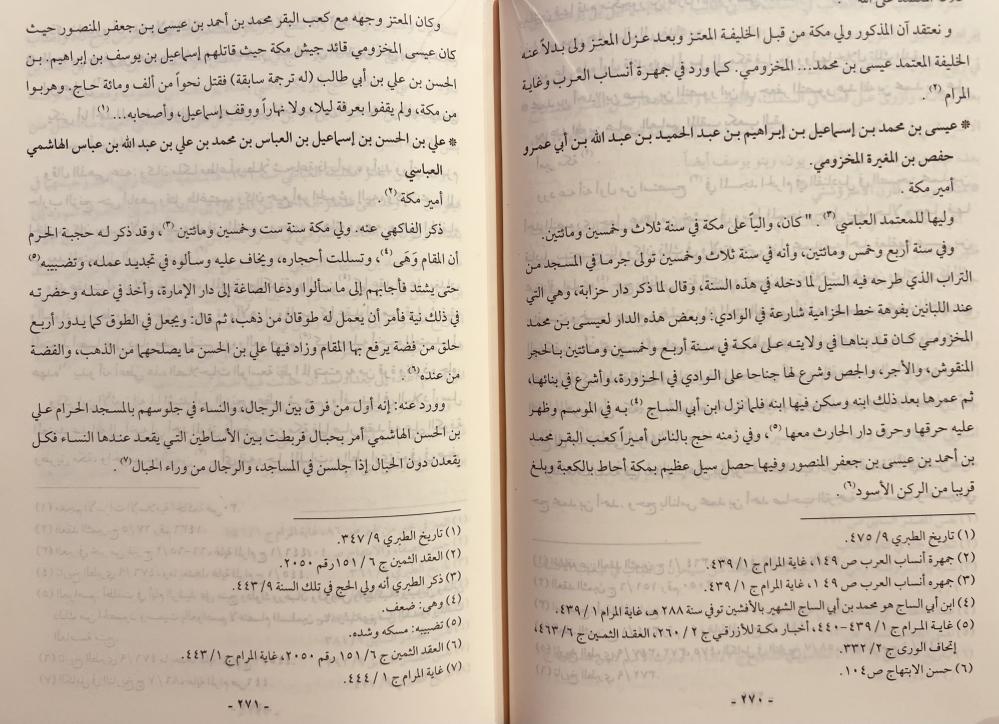 و نعتقد أن المذكور ولي مكة من قبل الخليفة المعتز وبعد عزل المعتز ولى بدلاً عنه
الخليفة المعتمد عيسى بن محمد... المخزومي. كما ورد في جمهرة أنساب العرب وغاية
المرام (٢).
* عيسى بن محمد بن إسماعيل بن إبراهيم بن عبد الحميد بن عبد الله بن أبي عمرو
حفص بن المغيرة المخزومي.
أمير مكة .
وليها للمعتمد العباسي (٣). "كان، والياً على مكة في سنة ثلاث وخمسين ومائتين.
وفي سنة أربع وخمس ومائتين، وأنه في سنة ثلاث وخمسين تولى جرما في المسجد من
التراب الذي طرحه فيه السيل لما دخله في هذه السنة، وقال لما ذكر دار حزابة، وهي التي
عند اللبانين بفوهة خط الحزامية شارعة في الوادي: وبعض هذه الدار لعيسى بن محمد
المخزومي كان قد بناها في ولايته على مكة في سنة أربع وخمسين ومائتين بالحجر
المنقوش، والأجر، والجص وشرع لها جناحا على الوادي في الحزورة، وأشرع في بنائها،
ثم عمرها بعد ذلك ابنه وسكن فيها ابنه فلما نزل ابن أبي الساج (٤) به في الموسم وظهر
عليه حرقها وحرق دار الحارث معها (٥)، وفي زمنه حج بالناس أميراً كعب البقر محمد
بن أحمد بن عيسى بن جعفر المنصور وفيها حصل سيل عظيم بمكة أحاط بالكعبة وبلغ
قريبا من الركن الأسود (٦).
(١) تاريخ الطبري ٩/ ٤٧٥.
(٢) جمهرة أنساب العرب ص ١٤٩، غاية المرام ج ١/ ٤٣٩.
(٣) جمهره أنساب العرب ص ١٤٩، غاية المرام ج ١/ ٤٣٩.
(٤) ابن أبي الساج هو محمد بن أبي الساج الشهير بالأفشين توفي سنة ٢٨٨ هـ، غاية المرام ١/ ٤٣٩.
(٥) غاية المرام ج ١/ ٤٣٩-٤٤٠، أخبار مكة للأزرقي ج ٢/ ٢٦٠، العقد الثمين ج ٦/ ٤٦٣،
إتحاف الورى ج ٢/ ٣٣٢.
(٦) حسن الابتهاج ص ١٠٤.
- ٢٧٠ -
وكان المعتز وجهه مع كعب البقر محمد بن أحمد بن عيسى بن جعفر المنصور حيث
كان عيسى المخزومي قائد جيش مكة حيث قاتلهم إسماعيل بن يوسف بن إبراهيم. بن
الحسن بن علي بن أبي طالب (له ترجمة سابقة) فقتل نحواً من ألف ومائة حاج. وهربوا
من مكة، ولم يقفوا بعرفة ليلا، ولا نهاراً ووقف إسماعيل، وأصحابه... (١)
* علي بن الحسن بن إسماعيل بن العباس بن محمد بن علي بن عبد الله بن عباس الهاشمي
العباسي
أمير مكة (٢).
ذكر الفاكهي عنه. ولي مكة سنة ست وخمسين ومائتين (٣)، وقد ذكر له حجبة الحرم
أن المقام وَهَى (٤)، وتسللت أحجاره، ويخاف عليه وسألوه في تجديد عمله، وتضبيبه (٥)
حتى يشتد فأجابهم إلى ما سألوا ودعا الصاغة إلى دار الإمارة، وأخذ في عمله وحضرته
في ذلك نية فأمر أن يعمل له طوقان من ذهب، ثم قال: ويجعل في الطوق كما يدور أربع
حلق من فضة يرفع بها المقام وزاد فيها علي بن الحسن ما يصلحهما من الذهب، والفضة
من عنده (٦).
وورد عنه: إنه أول من فرق بين الرجال، والنساء في جلوسهم بالمسجد الحرام علي
بن الحسن الهاشمي أمر بحبال فربطت بين الأساطين التي يقعد عندها النساء فكل
يقعدن دون الحبال إذا جلسن في المساجد، والرجال من وراء الحبال (٧).
(١) تاريخ الطبري ٩/ ٣٤٧.
(٢) العقد الثمين ج ٦/ ١٥١ رقم ٢٠٥٠.
(٣) ذكر الطبري أنه ولي الحج في تلك السنة ٩/ ٤٤٣.
(٤) وهى: ضعف.
(٥) تضبيبه: مسكه وشده.
(٦) العقد الثمين ج ٦/ ١٥١ رقم ٢٠٥٠، غاية المرام ج ١/ ٤٤٣.
(٧) غاية المرام ج ١/ ٤٤٤.
- ٢٧١ -